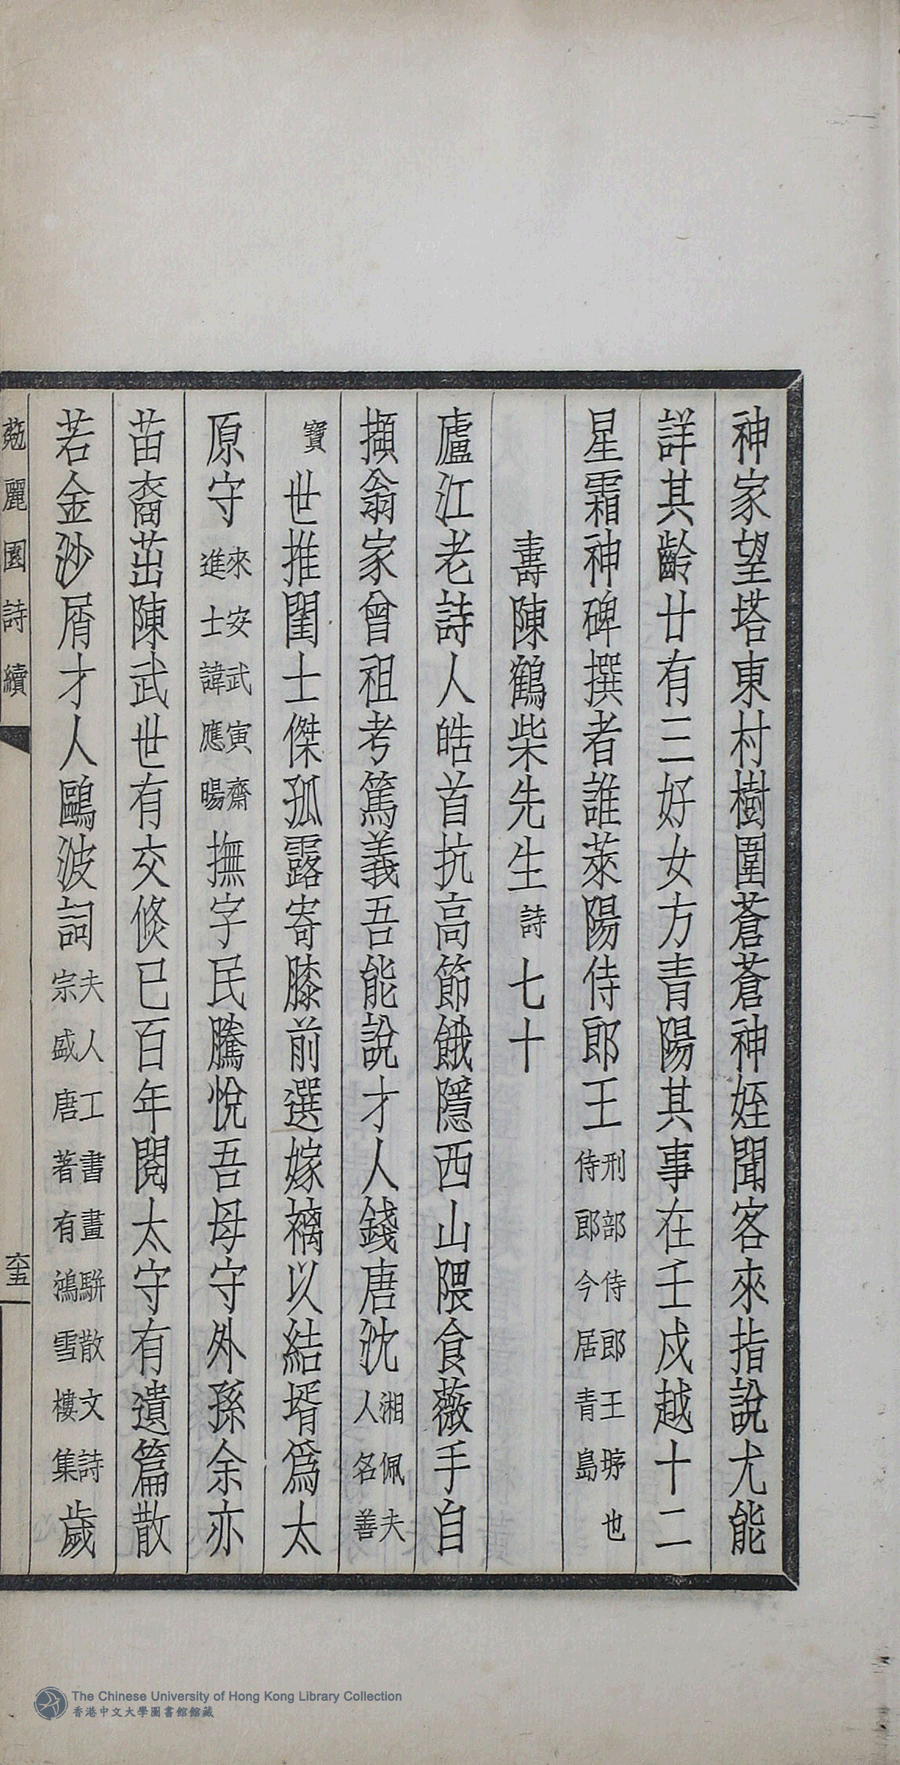 神家望塔東村樹圍蒼蒼神姪聞客來指說尤能
詳其齡廿有三好女方青陽其事在壬戌越十二
星霜神碑撰者誰萊陽侍郎王刑部侍郎王垿也侍郎今居青島
壽陳鶴柴先生詩七十
廬江老詩人皓首抗高節餓隱西山隈食薇手自
擷翁家曾祖考篤義吾能說才人錢唐沈湘佩夫人名善
寶世推閨士傑孤露寄膝前選嫁褵以結壻爲太
原守來安武寅齋進士諱應暘撫字民騰悅吾母守外孫余亦
苗裔茁陳武世有交倐已百年閱太守有遺篇散
若金沙屑才人鷗波詞夫人工書畫駢散文詩宗盛唐著有鴻雪樓集歲
麗園詩續
六五
The Chinese University of Hong Kong Library Collection
香港中文大學圖書館館藏